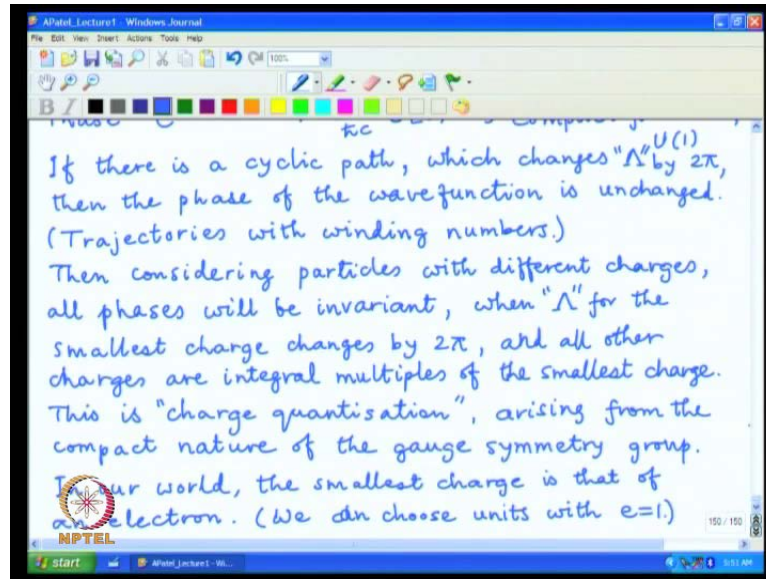 APatel_Lecture1 - Windows Journal
File Edit View Insert Actions Tools Help
100%
B I
ħc
U(1)
If there is a cyclic path, which changes "Λ" by 2π,
then the phase of the wavefunction is unchanged.
(Trajectories with winding numbers.)
Then considering particles with different charges,
all phases will be invariant, when "Λ" for the
smallest charge changes by 2π, and all other
charges are integral multiples of the smallest charge.
This is "charge quantisation", arising from the
compact nature of the gauge symmetry group.
In our world, the smallest charge is that of
an electron. (We can choose units with e=1.)
150 / 150
NPTEL
start APatel_Lecture1 - Wi... 5:51 AM